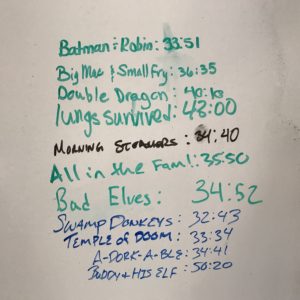 Batman & Robin: 33:51
Big Max & Small Fry: 36:35
Double Dragon: 40:10
lungs survived: 48:00
MORNING : 34:40
All in the Fam!: 35:50
Bad Elves: 34:52
SWAMP DONKEYS: 32:43
TEMPLE OF DOOM: 33:34
A-DORK-A-BLE: 34:41
BUDDY & HIS ELF: 50:20